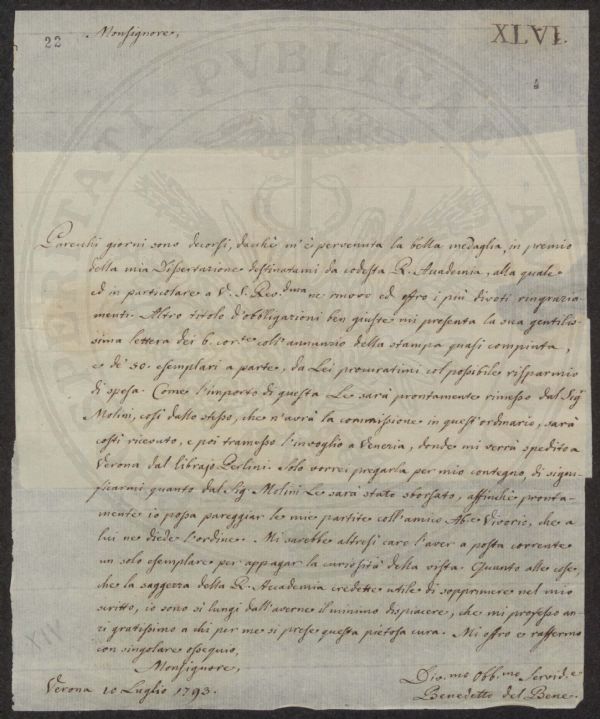 22
Monsignore,
XLVI.
Parecchi giorni sono decorsi, dacchè m'è pervenuta la bella medaglia, in premio
della mia Dissertazione destinatami da codesta R. Accademia, alla quale
ed in particolare a V. S. Rev.dma ne rinovo ed offro i più divoti ringrazia-
menti. Altro titolo d'obbligazioni ben giuste mi presenta la sua gentilis-
sima lettera dei 6. corte coll'annunzio della stampa quasi compiuta,
e de' 50. esemplari a parte, da Lei procuratimi col possibile risparmio
di spesa. Come l'importo di questa Le sarà prontamente rimesso dal Sig.
Molini, così dallo stesso, che n'avrà la commissione in quest'ordinario, sarà
costì ricevuto, e poi trasmesso l'invoglio a Venezia, donde mi verrà spedito a
Verona dal librajo Perlini. Solo vorrei pregarla per mio contegno, di signi-
ficarmi quanto dal Sig. Molini Le sarà stato sborsato, affinchè pronta-
mente io possa pareggiar le mie partite coll'amico Abe Vivorio, che a
lui ne diede l'ordine. Mi sarebbe altresì caro l'aver a posta corrente
un solo esemplare per appagar la curiosità della vista. Quanto alle cose,
che la saggezza della R. Accademia credette utile di sopprimere nel mio
scritto, io sono sì lungi dall'averne il minimo dispiacere, che mi professo an-
zi gratissimo a chi per me si prese questa pietosa cura. Mi offro e raffermo
con singolare ossequio,
Monsignore,
Verona 10 Luglio 1793.
Div.mo Obb.mo Servid.e
Benedetto del Bene.
XIV